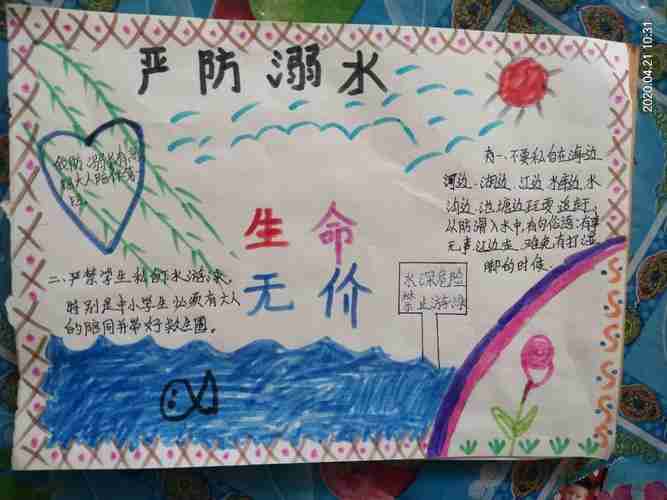 严防溺水
2020.04.21 10:31
有一、不要私自在海边、
河边、湖边、江边、水库边、水
沟边、池塘边玩耍、追赶,
以防滑入水中,有句俗话:有事
无事江边走,难免有打湿
脚的时候。
生命
无价
二、严禁学生私自下水游泳,
特别是中小学生必须有大人
的陪同并带好救生圈。
水深危险
禁止游泳